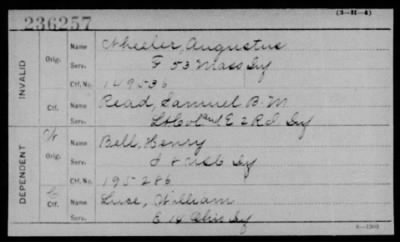 (3-H-4)
236257
INVALID
Orig.
Name Wheeler, Augustus
Serv. F 53 Mass Inf
Ctf. No. 149536
Ctf.
Name Read, Samuel B. M.
Serv. Lt Col and E 2 R I Inf
DEPENDENT
W
Orig.
Name Bell, Henry
Serv. I 8 Inf
Ctf. No. 195286
C
Ctf.
Name Luse, William
Serv. E 14 Ohio Inf